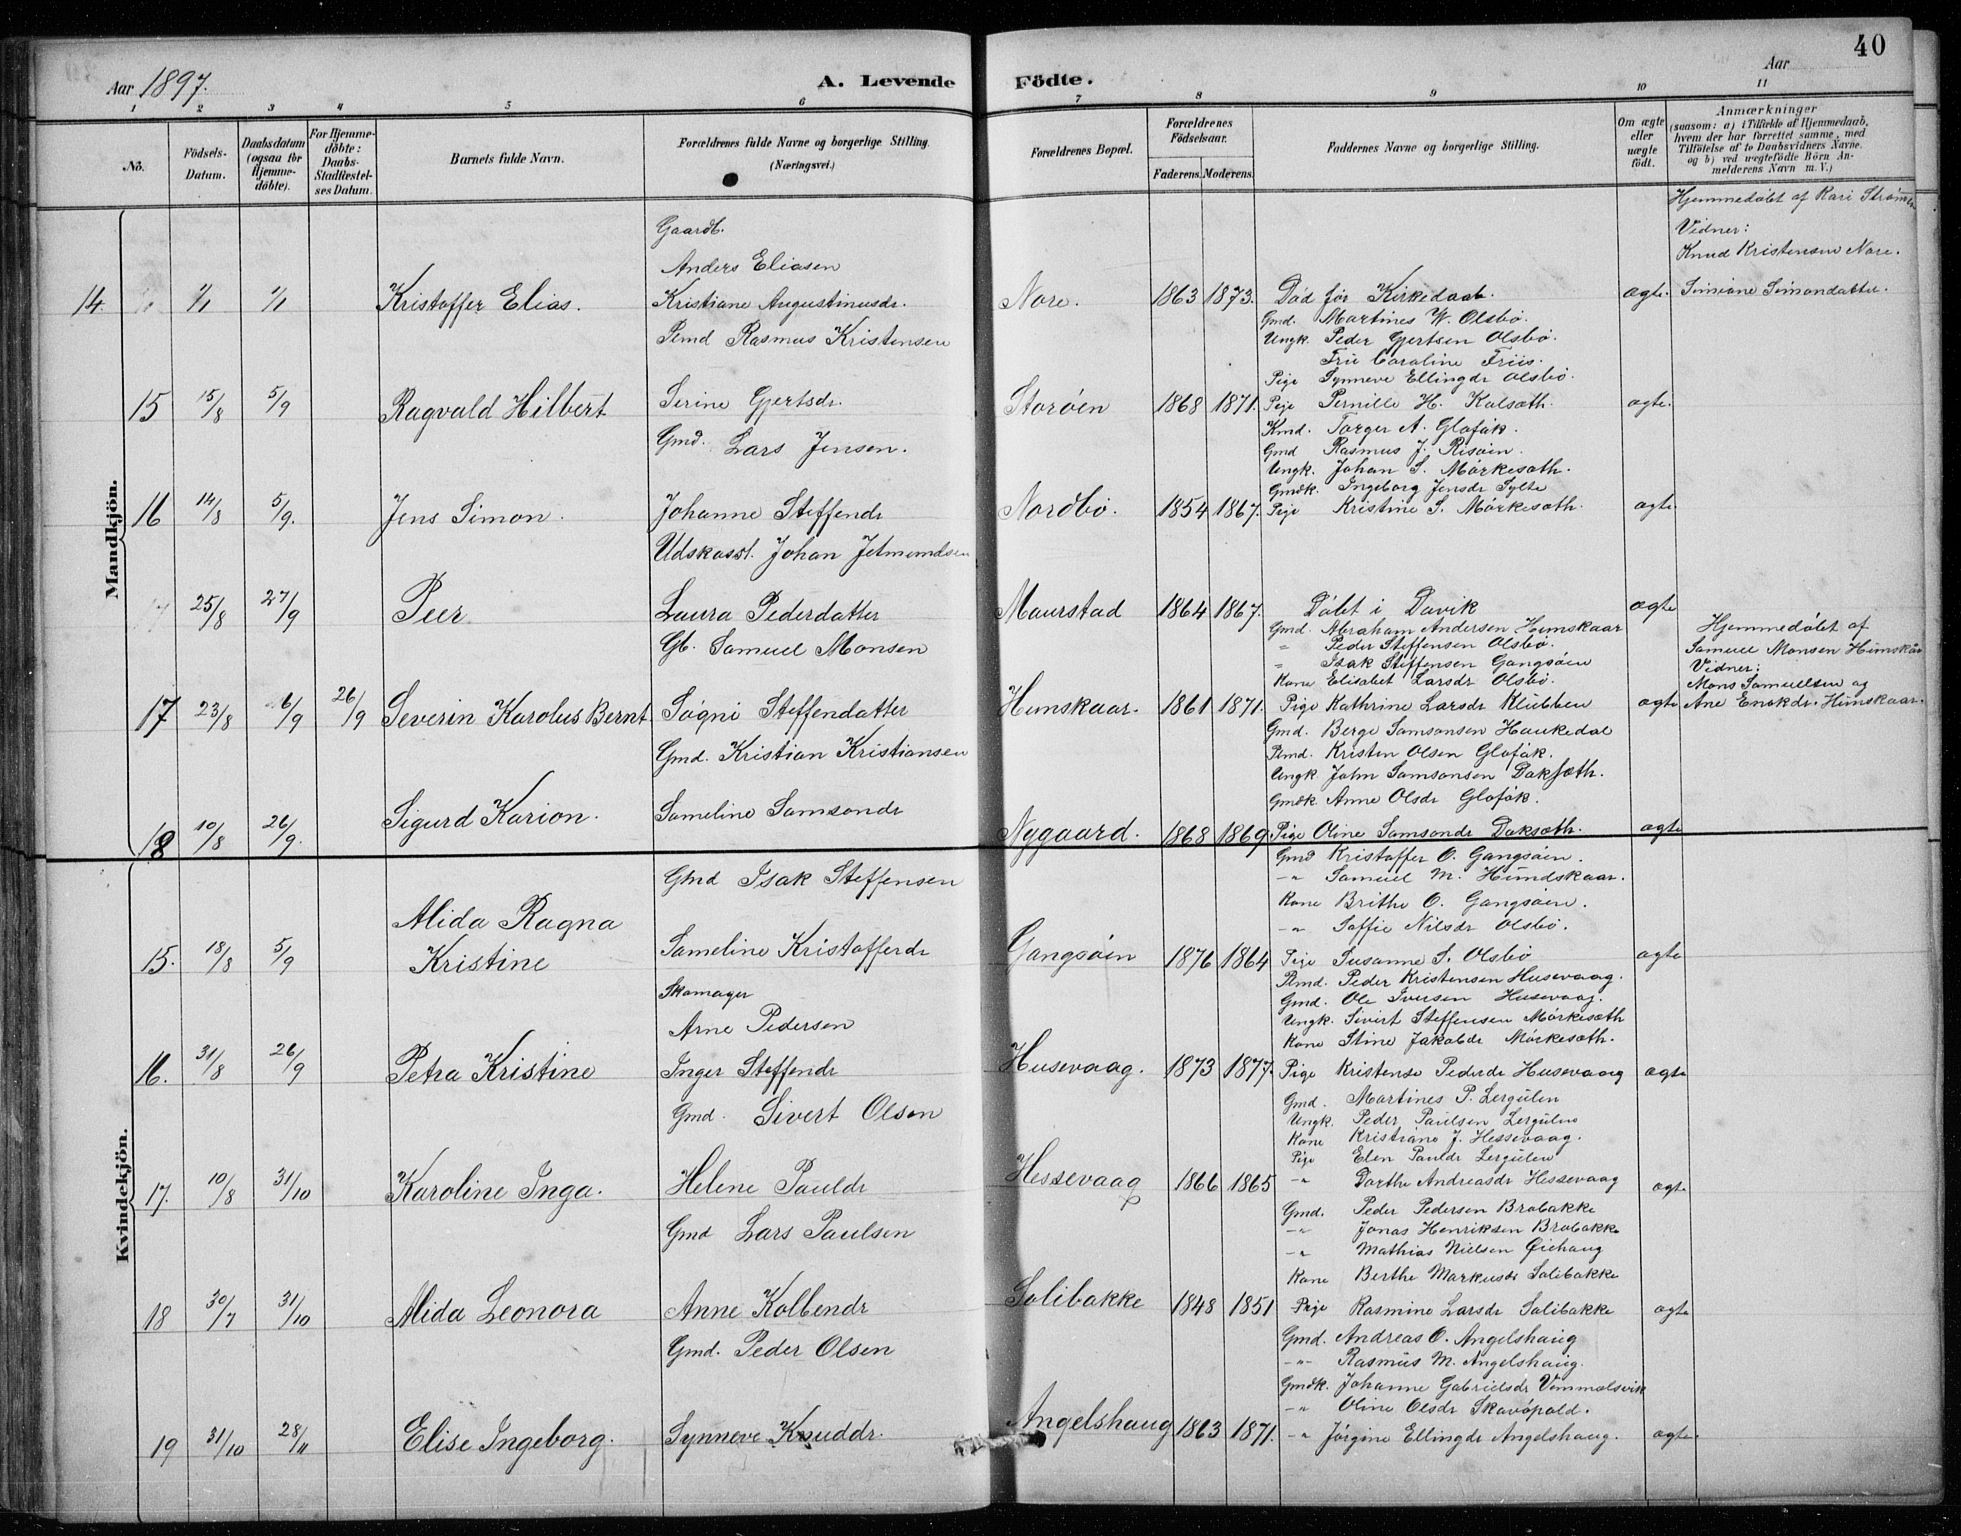 40
Aar 1897.
A. Levende Födte.
Aar
1 2 3 4 5 6 7 8 9 10 11
No.
Födsels-Datum.
Daabsdatum (ogsaa for Hjemmedöbte).
For Hjemmedöbte: Daabs-Stadfæstelses Datum.
Barnets fulde Navn.
Forældrenes fulde Navne og borgerlige Stilling. (Næringsvei.)
Forældrenes Bopæl.
Forældrenes Födselsaar.
Faderens. Moderens.
Faddernes Navne og borgerlige Stilling.
Om ægte eller uægte født.
Anmærkninger
(saasom: a) i Tilfælde af Hjemmedaab, hvem der har forrettet samme, med Tilföielse af to Daabsvidners Navne. og b) ved uægtefödte Börn Anmelderens Navn m. V.)
Mandkjön.
Gaardb.
Anders Eliasen
14. 1/1 1/1 Kristoffer Elias. Kristiane Augustinusdr. Nore. 1863 1873. Død før Kirkedaab. ægte.
Hjemmedøbt af Kari Strømm
Vidner:
Knud Kristensen Nore.
Simiane Simondatter.
Plmd Rasmus Kristensen
Gmd. Martines W. Olsbö.
Ungk. Peder Gjertsen Olsbö.
Fru Caroline Friis.
Pige Synneve Ellingdr Olsbö.
15 15/8 5/9 Ragvald Hilbert Serine Gjertsdr. Storöen 1868 1871. Pige Pernille H. Kalsæth. ægte.
Gmd. Lars Jensen.
Kmd. Torger A. Glofák.
Gmd Rasmus J. Risöin.
Ungk. Johan S. Mörkesæth.
Gmdk. Ingeborg Jensdr Sylte
16 14/8 5/9. Jens Simon. Johanne Steffendr Nordbö. 1854 1867. Pige Kristine S. Mörkesæth. ægte.
Udskasst. Johan Jetmundsen
25/8 27/9 Peer Laura Pederdatter Maurstad 1864 1867. Döbt i Davik ægte
Gb. Samuel Monsen
Gmd. Abraham Andersen Humskaar
" Peder Steffensen Olsbö.
" Isak Steffensen Gangsöen
Kone Elisabet Larsdr Olsbö.
Hjemmedöbt af
Samuel Monsen Humskår
Vidner:
Mons Samuelsen og
17 23/8 6/9 26/9 Severin Karolus Bernt Sögni Steffendatter Humskaar. 1861 1871. Pige Kathrine Larsdr Klubben ægte Ane Enokdr. Humskaar.
Gmd. Kristian Kristiansen
Gmd. Berge Samsonsen Haukedal
Plmd. Kristen Olsen Glofåk.
Ungk John Samsonsen Daksæth.
Gmdk Anne Olsdr Glofåk.
18 10/8 26/9. Sigurd Karion. Sameline Samsondr Nygaard. 1868 1869. Pige Oline Samsondr Daksæth. ægte
Kvindekjön.
Gmd Isak Steffensen
Gmd Kristoffer O. Gangsöen.
-"- Samuel M. Hundskaar.
Kone Brithe O. Gangsöen.
-"- Soffie Nilsdr Olsbö.
Alida Ragna
15. 18/8 5/9 Kristine Sameline Kristofferdr Gangsöin 1876 1864 Pige Susanne S. Olsbö ægte
Skomager
Arne Pedersen
Plmd. Peder Kristensen Husevaag.
Gmd. Ole Iversen Husevaag.
Ungk. Sivert Steffensen Mörkesæth
Kone Stine Jakobdr Mörkesæth.
16. 31/8 26/9 Petra Kristine Inger Steffendr Husevaag. 1873 1877. Pige Kristense Pederdr Husevaag ægte
Gmd. Sivert Olsen
Gmd. Martines P. Lergulen
Ungk. Peder Paulsen Lergulen
Kone Kristiane J. Hessevaag.
Pige Elen Pauldr Lergulen
17. 10/8 31/10 Karoline Inga. Helene Pauldr Hessevaag 1866 1865 -"- Dorthe Andreasdr Hessevaag ægte
Gmd Lars Paulsen
Gmd. Peder Pedersen Brobakke
-"- Jonas Henriksen Brobakke
-"- Mathias Nielsen Öiehaug
Kone Berthe Markusdr Solibakke
18 30/7 31/10 Alida Leonora Anne Kolbendr Solibakke 1848 1851 Pige Rasmine Larsdr Solibakke ægte
Gmd. Peder Olsen
Gmd. Andreas O. Angelshaug
-"- Rasmus M. Angelshaug.
Gmdk. Johanne Gabrielsdr Vemmelsvik
-"- Oline Olsdr Skavöpold.
19 31/10 28/11 Elise Ingeborg. Synneve Knuddr. Angelshaug 1863 1871. -"- Jörgine Ellingdr Angelshaug. ægte.